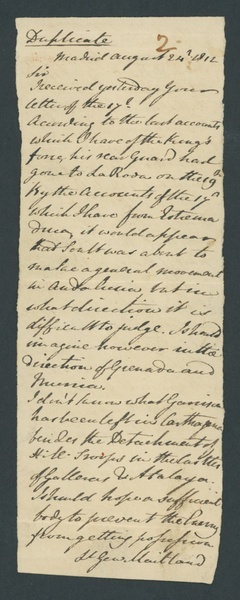 Duplicate
2
Madrid August 24th 1812
Sir
I received yesterday Your
letter of the 17th.
According to the last accounts
which I have of the King's
force, his rear Guard had
gone to La Roda on the 19th
By the Accounts of the 17th
which I have from Estrema
dura, it would appear
that Soult was about to
make a general movement
in Andalusia but in
what direction it is
difficult to judge. I should
imagine however in the
direction of Grenada and
Murcia.
I don't know what Garrison
has been left in Carthagena
besides the Detachment of
H: M: Troops in the Castles
of Galleras & Atalaya.
I should hope a sufficient
body to prevent the Enemy
from getting possession
Lt Genl Maitland